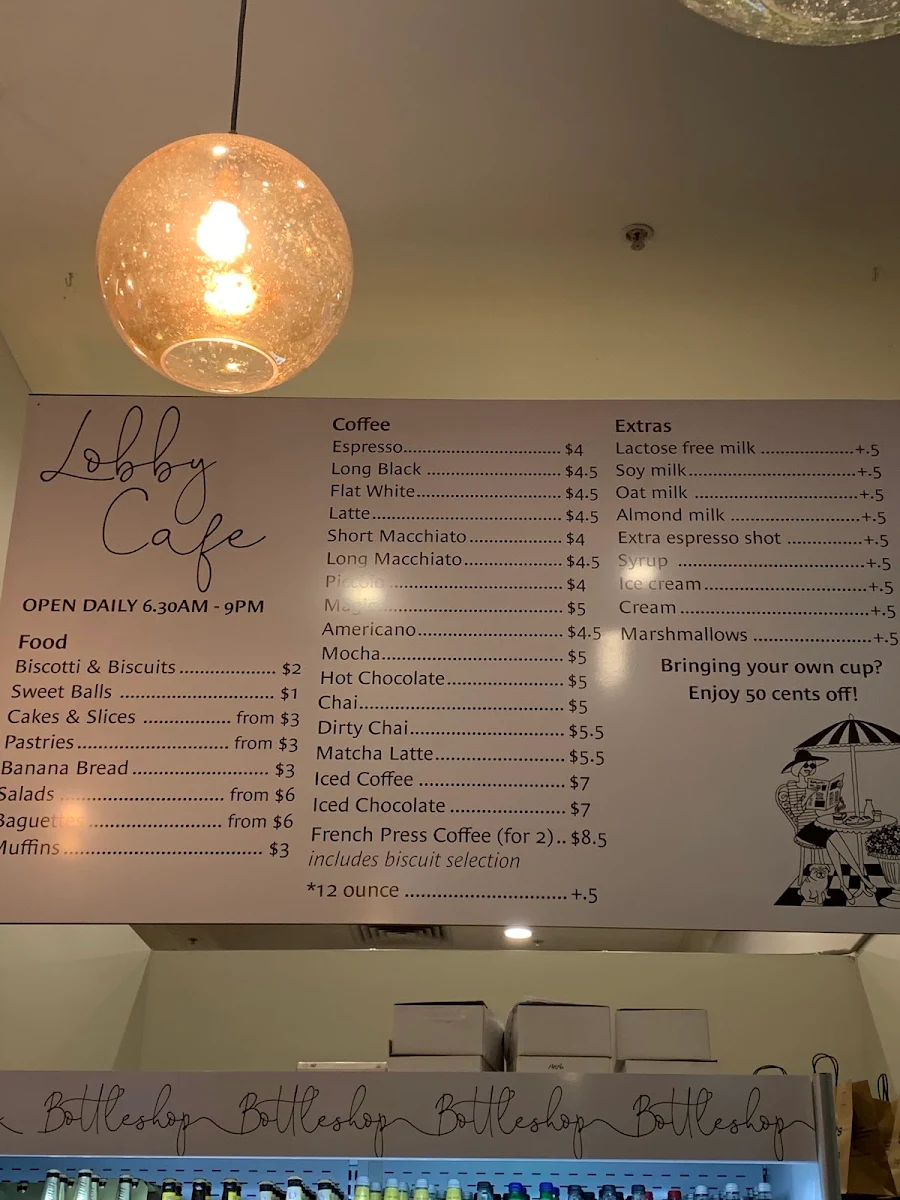 Lobby
Cafe
OPEN DAILY 6.30AM - 9PM
Food
Biscotti & Biscuits ................. $2
Sweet Balls ........................... $1
Cakes & Slices ............... from $3
Pastries .......................... from $3
Banana Bread ....................... $3
Salads ............................ from $6
Baguettes ...................... from $6
Muffins .................................. $3
Coffee
Espresso................................ $4
Long Black ............................ $4.5
Flat White.............................. $4.5
Latte....................................... $4.5
Short Macchiato ................... $4
Long Macchiato.................... $4.5
Piccolo ................................... $4
Magic ..................................... $5
Americano............................. $4.5
Mocha.................................... $5
Hot Chocolate....................... $5
Chai......................................... $5
Dirty Chai............................... $5.5
Matcha Latte.......................... $5.5
Iced Coffee ............................ $7
Iced Chocolate ...................... $7
French Press Coffee (for 2).. $8.5
includes biscuit selection
*12 ounce ............................... +.5
Extras
Lactose free milk ...................+.5
Soy milk..................................+.5
Oat milk .................................+.5
Almond milk ..........................+.5
Extra espresso shot ...............+.5
Syrup .....................................+.5
Ice cream................................+.5
Cream .....................................+.5
Marshmallows .......................+.5
Bringing your own cup?
Enjoy 50 cents off!
Bottleshop Bottleshop Bottleshop Bottleshop